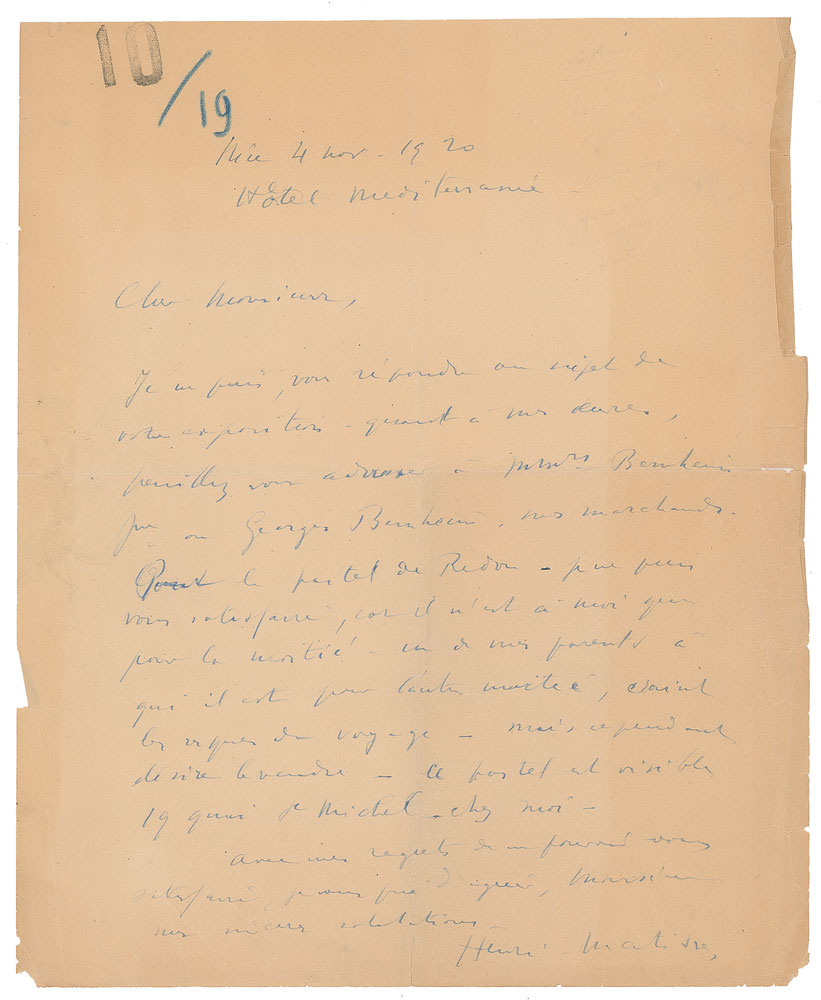 10
/19
Nice 4 nov - 1920
Hôtel Mediterranée -
Cher Monsieur,
Je ne puis, vous répondre au sujet de
votre exposition - quant à mes œuvres,
veuillez vous adresser à MMrs Bernheim
Jne ou Georges Bernheim, mes marchands.
Pour le pastel de Redon - je ne puis
vous satisfaire, car il n'est à moi que
pour la moitié - un de mes parents à
qui il est pour l'autre moitié, craint
les risques du voyage - mais cependant
désire le vendre - ce pastel est visible
19 quai St Michel - chez moi -
Avec mes regrets de ne pouvoir vous
satisfaire, je vous prie d'agréer, Monsieur
mes sincères salutations -
Henri - Matisse,